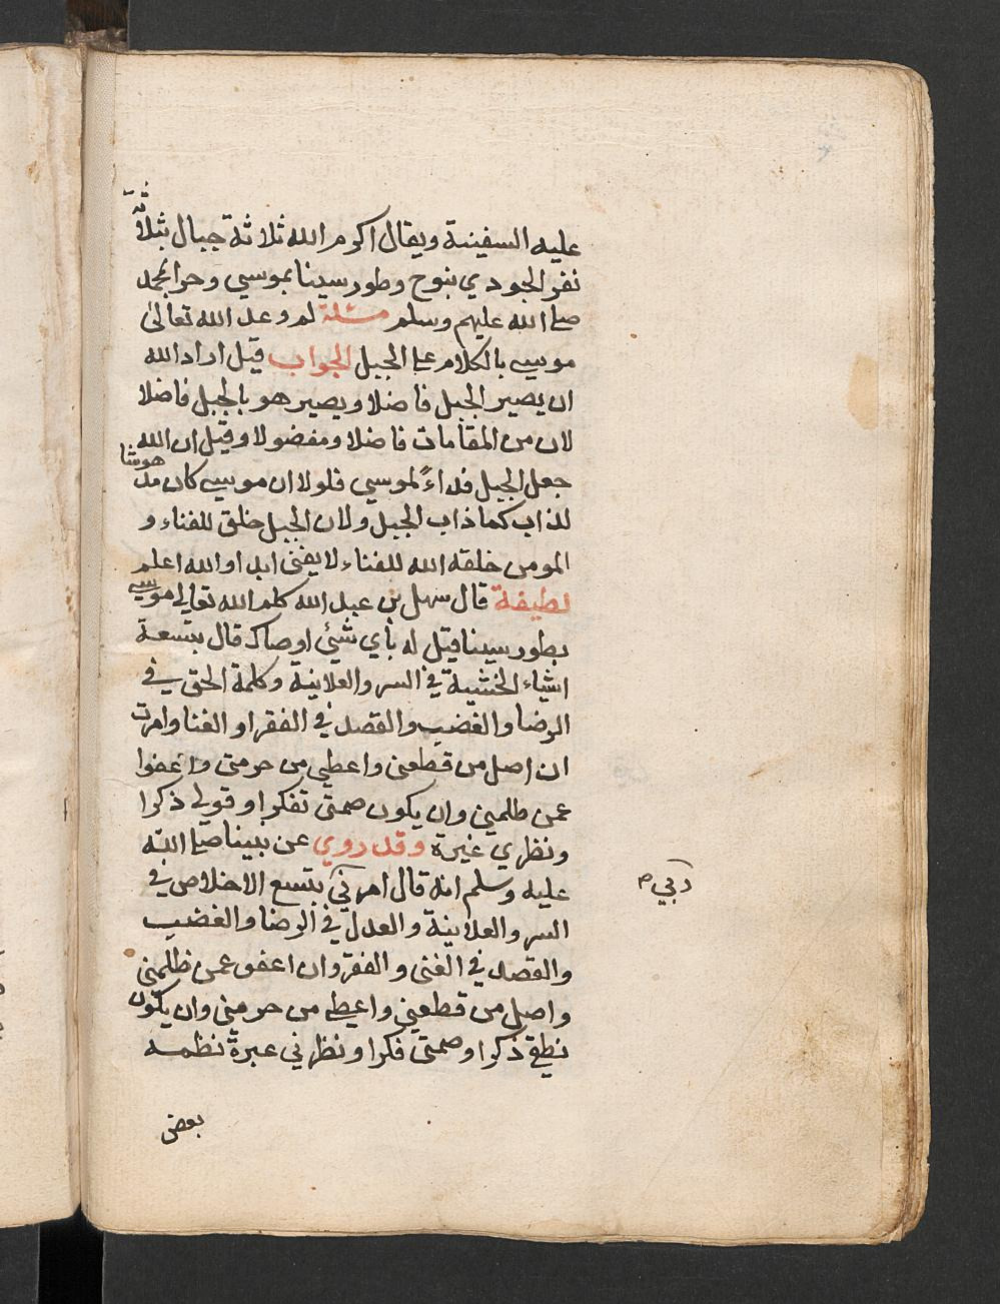 عليه السفينة ويقال اكرم الله ثلاثة جبال بثلاثة
نفر الجودي بنوح وطور سينا بموسي وحرا بمحمد
صلى الله عليهم وسلم مسئلة لم وعد الله تعالى
موسى بالكلام على الجبل الجواب قيل اراد الله
ان يصير الجبل فاضلا ويصير هو بالجبل فاضلا
لان من المقامات فاضلا ومفضولا وقيل ان الله
جعل الجبل فداءً لموسي فلولا ان موسى كان مدهوشا
لذاب كما ذاب الجبل ولان الجبل خلق للفناء و
المومن خلقه الله للفناء لا يفنى ابدا والله اعلم
لطيفة قال سهل بن عبد الله كلم الله تعالى موسى
بطور سينا قيل له بأي شئي اوصاك قال بتسعة
اشياء الخشية في السر والعلانية وكلمة الحق في
الرضا والغضب والقصد في الفقر او الغنا وامرت
ان اصل من قطعنى واعطي من حرمنى واعفوا
عمن ظلمني وان يكون صمتى تفكرا وقولي ذكرا
ونظري عبرة وقد روي عن نبينا صلى الله
عليه وسلم انه قال امرني بتسع الاخلاص في
ربي م
السر والعلانية والعدل في الرضا والغضب
والقصد في الغنى والفقر وان اعفو عمن ظلمنى
واصل من قطعني واعطى من حرمنى وان يكون
نطقى ذكرا وصمتى فكرا ونظري عبرة نظمه
بعض